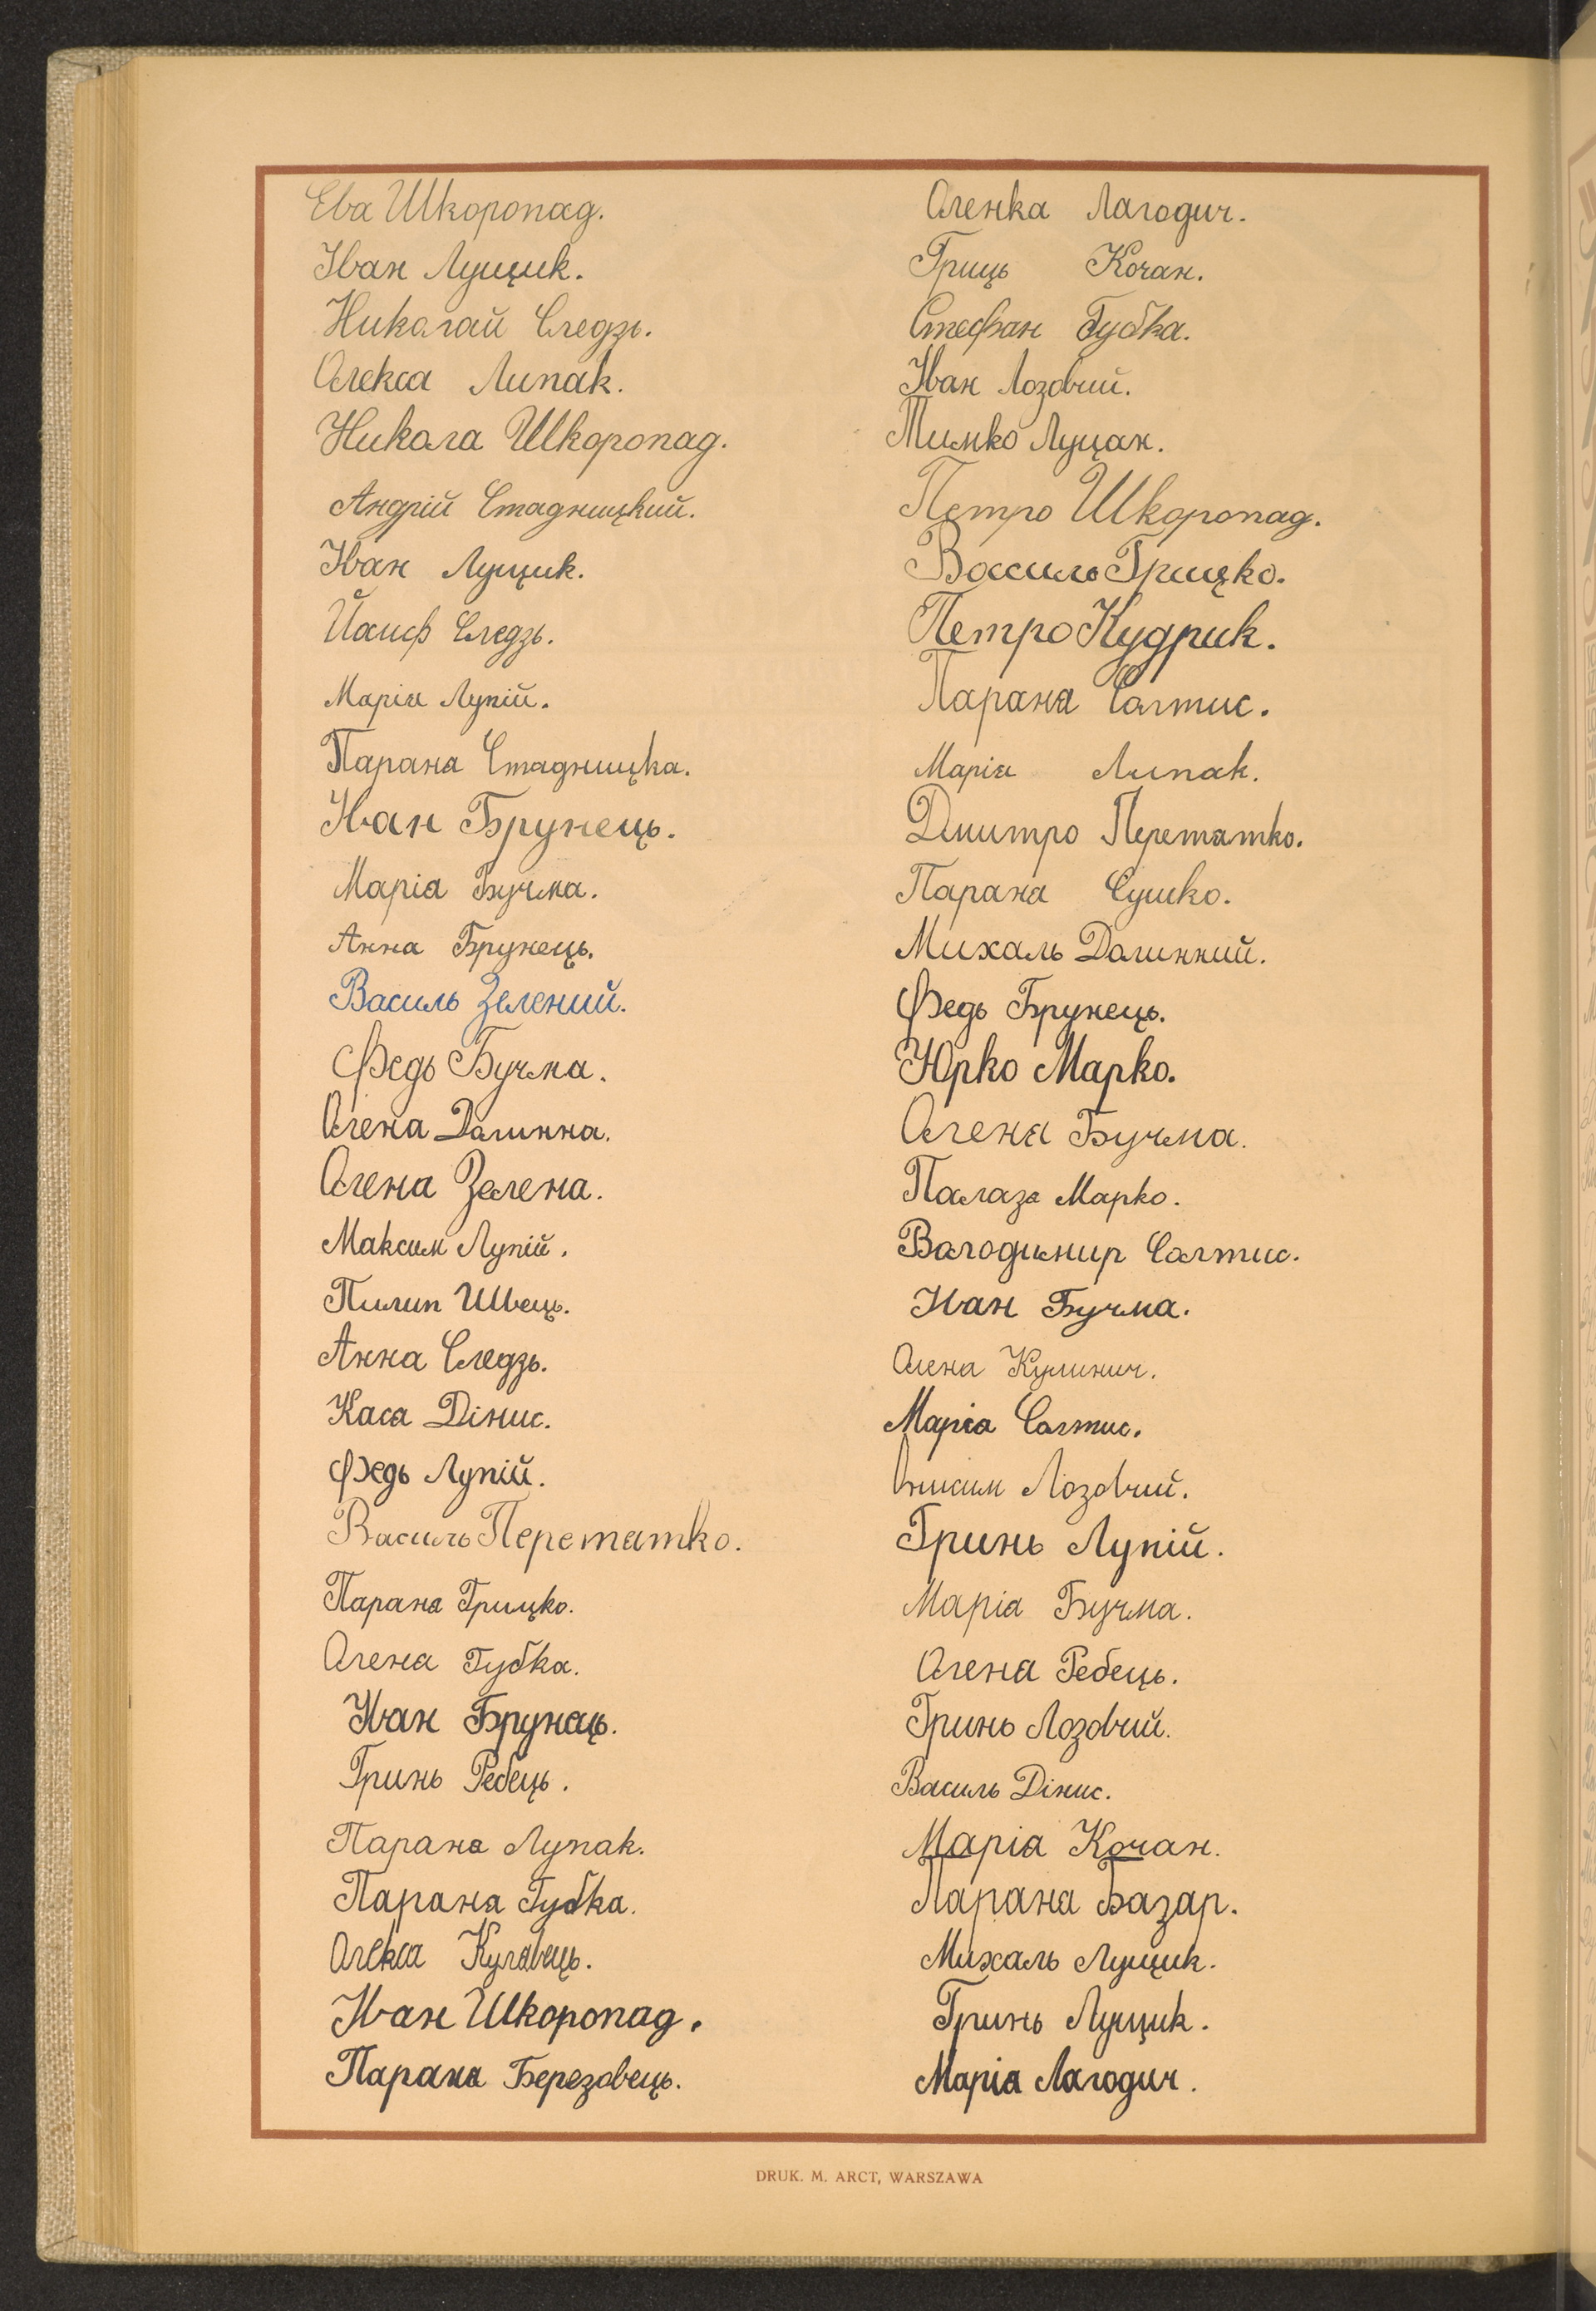 Ева Шкоропад.
Іван Лущик.
Николай Следзь.
Олекса Липак.
Никола Шкоропад.
Андрій Стадницкий.
Іван Лущик.
Йосиф Следзь.
Марія Лупій.
Парана Стадницка.
Іван Брунець.
Маріа Бучма.
Анна Брунець.
Василь Зелений.
Федь Бучма.
Олена Долинна.
Олена Зелена.
Максим Лупій.
Пилип Швець.
Анна Следзь.
Каса Дінис.
Федь Лупій.
Василь Перетатко.
Парана Грицко.
Олена Губка.
Іван Брунець.
Гринь Ребець.
Парана Лупак.
Парана Губка.
Олекса Кулавець.
Іван Шкоропад.
Парана Березовець.
Оленка Лагодич.
Гриць Кочан.
Стефан Губка.
Іван Лозовий.
Тимко Луцан.
Петро Шкоропад.
Василь Грицко.
Петро Кудрик.
Парана Солтис.
Марія Липак.
Дмитро Перетатко.
Парана Сушко.
Михаль Долинний.
Федь Брунець.
Юрко Марко.
Олена Бучма.
Палаза Марко.
Володимир Солтис.
Іван Бучма.
Олена Кулинич.
Маріа Солтис.
Онисим Лозовий.
Гринь Лупій.
Маріа Бучма.
Олена Ребець.
Гринь Лозовий.
Василь Дінис.
Маріа Кочан.
Парана Базар.
Михаль Лущик.
Гринь Лущик.
Маріа Лагодич.
DRUK. M. ARCT, WARSZAWA